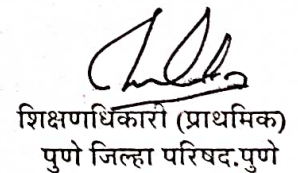 शिक्षणाधिकारी (प्राथमिक)
पुणे जिल्हा परिषद.पुणे